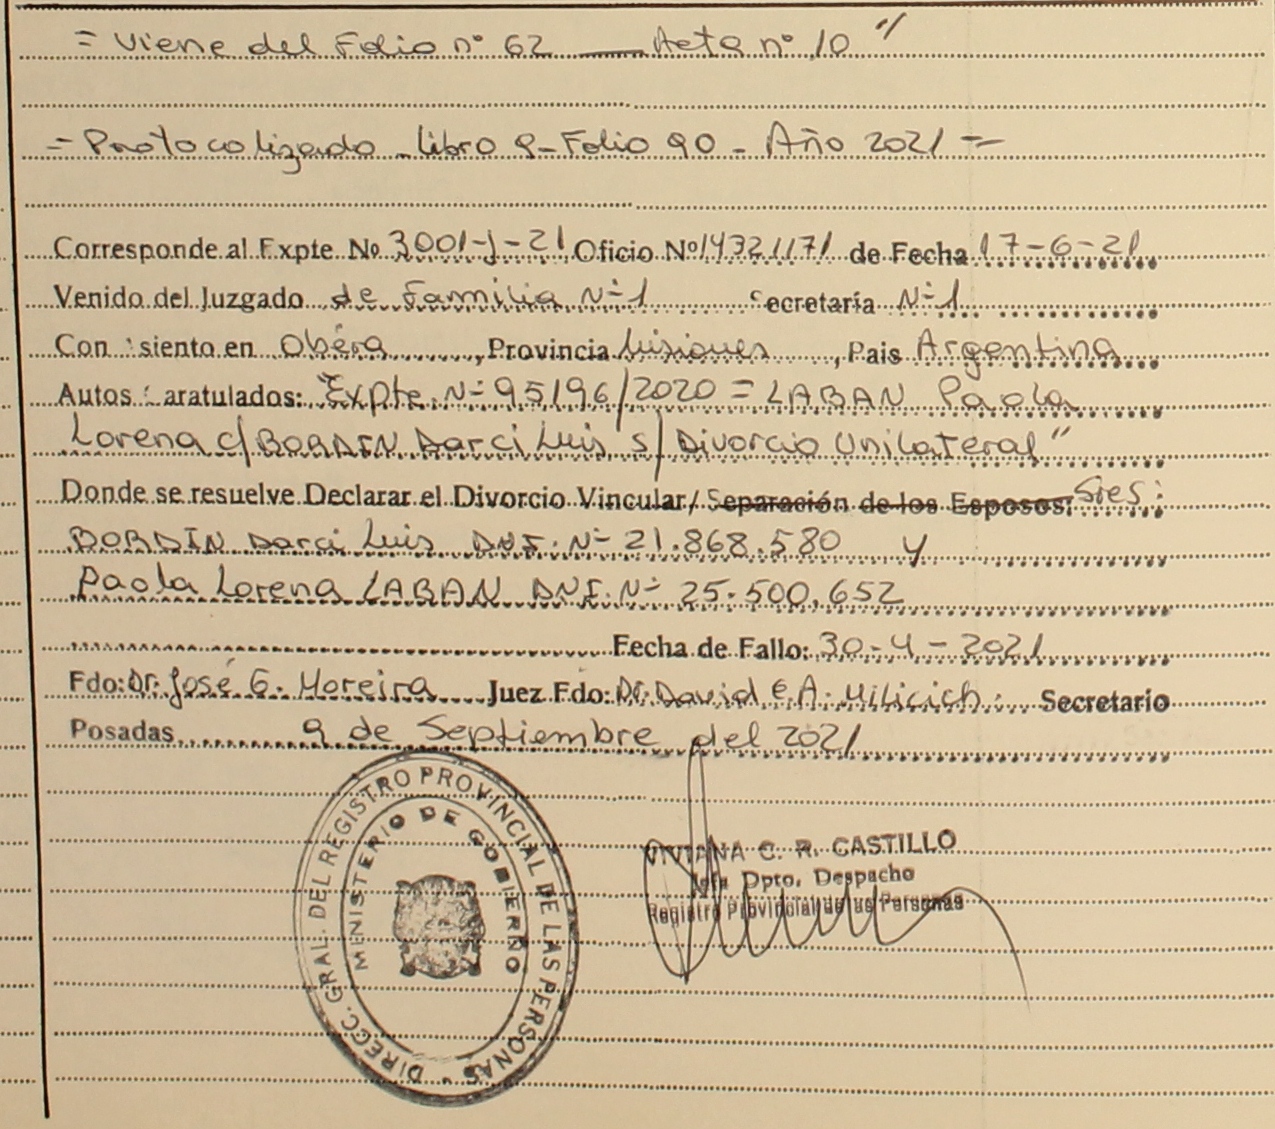 = Viene del Folio nº 62 — Acta nº 10 "
= Protocolizado - Libro 9 - Folio 90 - Año 2021 =
Corresponde al Expte. Nº 3001-J-21 Oficio Nº 14321171 de Fecha 17-6-21
Venido del Juzgado de Familia Nº 1 Secretaría Nº 1
Con siento en Oberá, Provincia Misiones, Pais Argentina
Autos aratulados: "Expte. Nº 95196/2020 = LABAN Paola
Lorena c/ BORDIN Darci Luis s/ Divorcio Unilateral"
Donde se resuelve Declarar el Divorcio Vincular/ Separación de los Esposos: Sres:
BORDIN Darci Luis DNI. Nº 21.868.580 y
Paola Lorena LABAN DNI. Nº 25.500.652
Fecha de Fallo: 30-4-2021
Fdo: Dr. José G. Moreira Juez Fdo: Dr. David E. A. Milicich: Secretario
Posadas 9 de Septiembre del 2021
DIRECC. GRAL. DEL REGISTRO PROVINCIAL DE LAS PERSONAS
MINISTERIO DE GOBIERNO
VIVIANA C. R. CASTILLO
Jefa Dpto. Despacho
Registro Provincial de las Personas